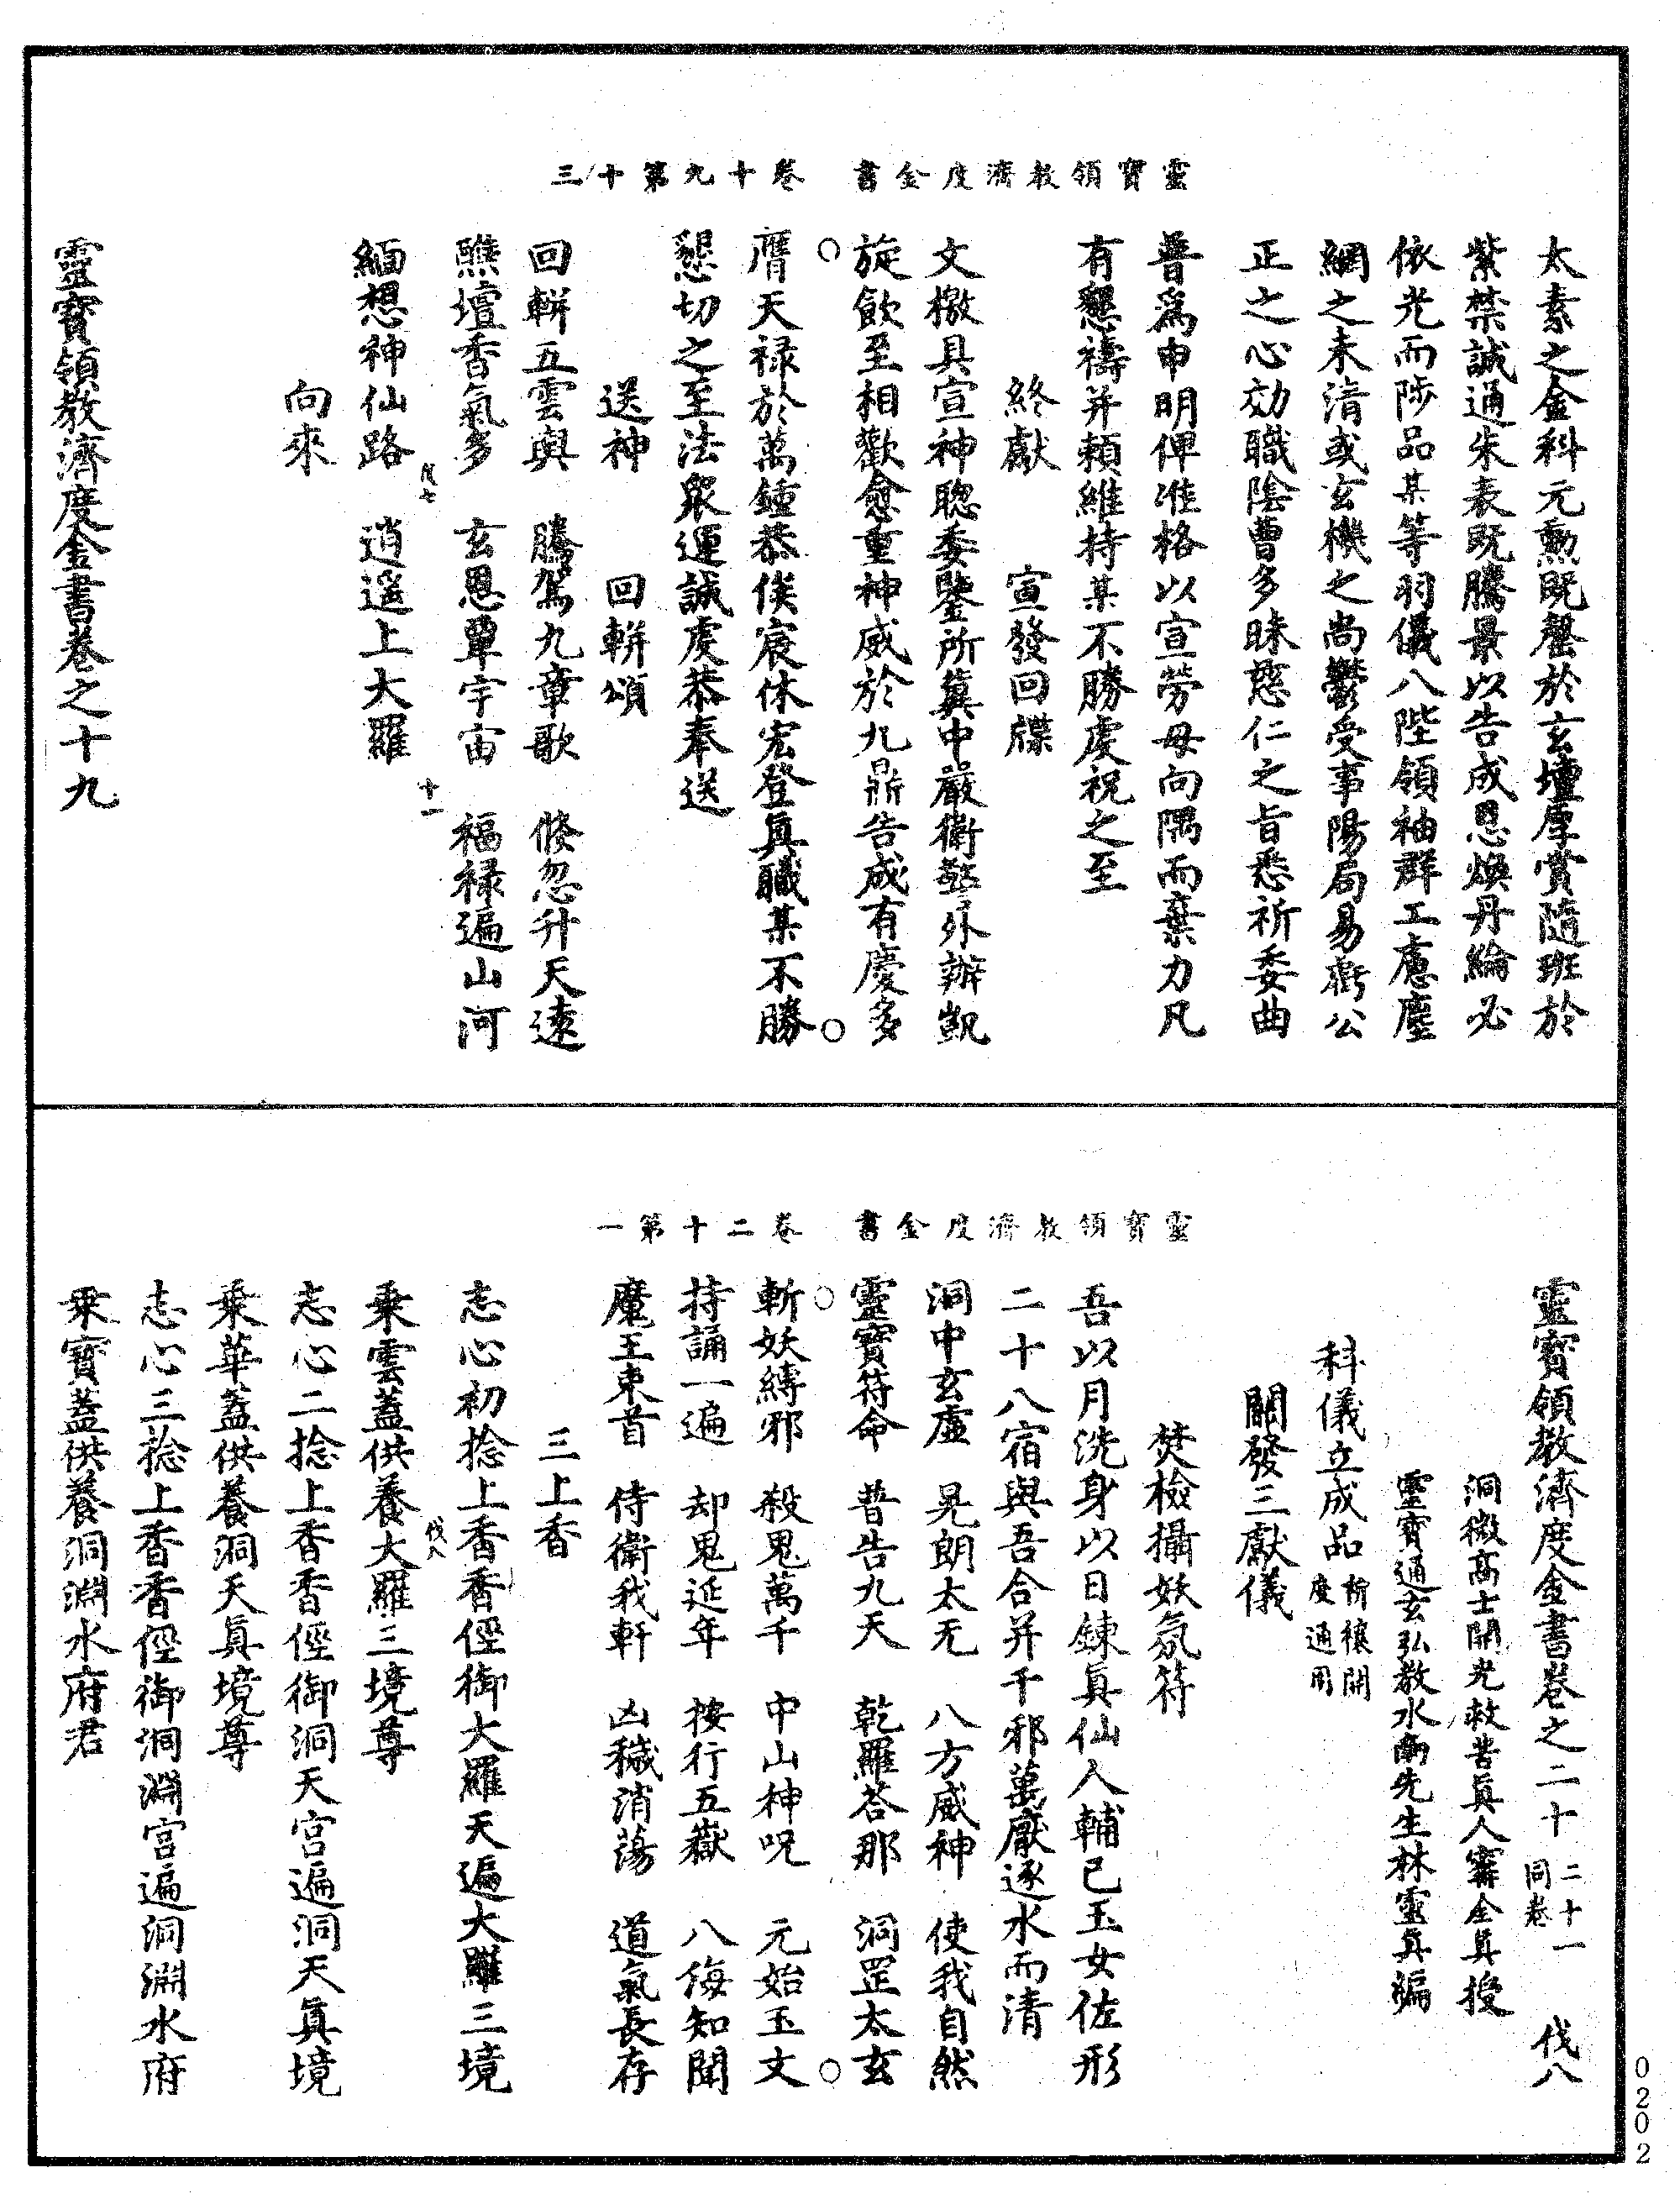 靈寶領教濟度金書　卷十九第十三
太素之金科元勳既罄於玄壇厚賞隨班於
紫禁誠通朱表既騰景以告成恩煥丹綸必
依光而陟品某等羽儀八陛領袖群工慮塵
網之未清或玄機之尚鬱受事陽局易虧公
正之心効職陰曹多昧慈仁之旨悉祈委曲
普爲申明俾准格以宣勞毋向隅而棄力凡
有懇禱并頼維持某不勝虔祝之至
終獻　宣發回牒
文檄具宣神聰委鑒所冀中嚴衛警外辦凱
旋飲至相歡愈重神威於九鼎告成有慶多
膺天禄於萬鍾恭俟宸休宏登眞職某不勝
懇切之至法衆運誠虔恭奉送
送神　回軿頌
回軿五雲輿　騰駕九章歌　倏忽升天逺
醮壇香氣多　玄恩覃宇宙　福禄遍山河
緬想神仙路　逍遥上大羅
向來
靈寶領教濟度金書卷之十九
靈寶領教濟度金書　卷二十第一
靈寶領教濟度金書卷之二十　二十一同卷　伐八
洞微高士開光救苦眞人寗全眞授
靈寶通玄弘教水南先生林靈眞編
科儀立成品　祈禳開度通用
關發三獻儀
焚檢攝妖氛符
吾以月洗身以日鍊眞仙人輔已玉女佐形
二十八宿與吾合并千邪萬厭逐水而清
洞中玄虛　晃朗太无　八方威神　使我自然
靈寶符命　普告九天　乾羅荅那　洞罡太玄
斬妖縛邪　殺鬼萬千　中山神呪　元始玉文
持誦一遍　却鬼延年　按行五嶽　八海知聞
魔王束首　侍衛我軒　凶穢消蕩　道氣長存
三上香
志心初捻上香香徑御大羅天遍大羅三境
乗雲蓋供養大羅三境尊
志心二捻上香香徑御洞天宫遍洞天眞境
乗華蓋供養洞天眞境尊
志心三捻上香香徑御洞淵宫遍洞淵水府
乗寶蓋供養洞淵水府君
0202